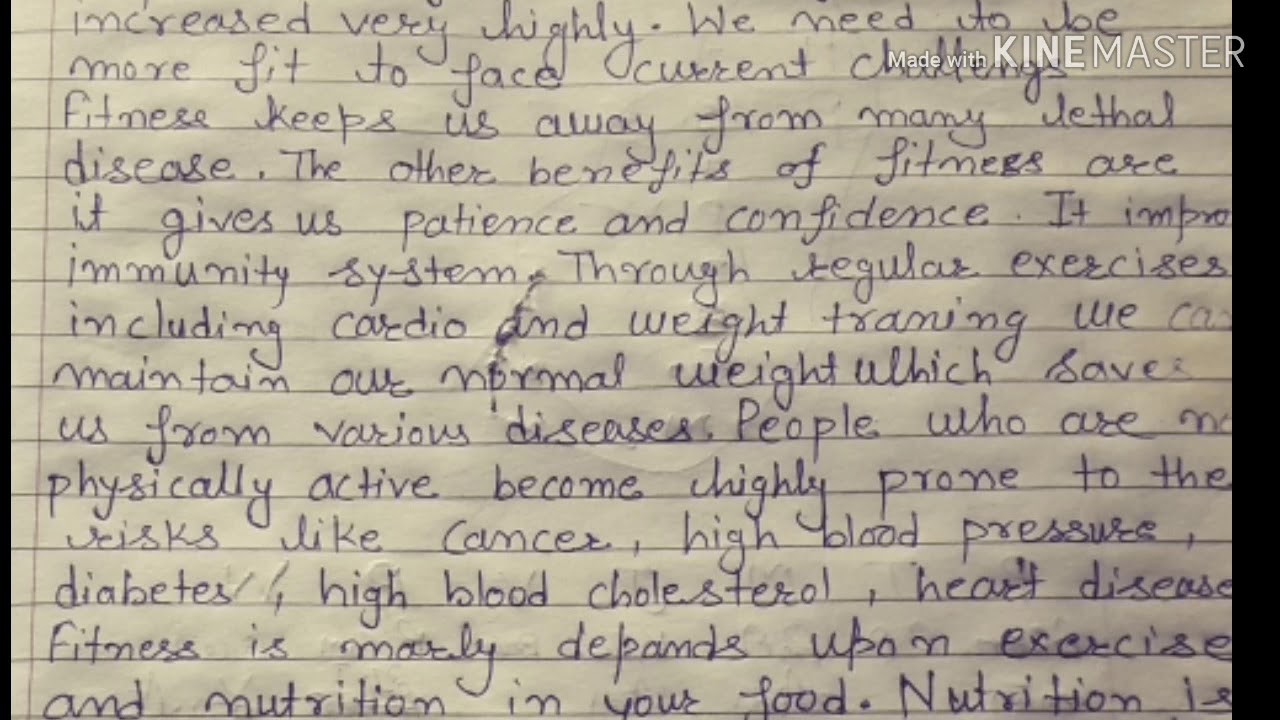 increased very highly. We need to be
Made with KINEMASTER
more fit to face current challengs
Fitness keeps us away from many lethal
disease. The other benefits of fitness are
it gives us patience and confidence. It impro
immunity system. Through regular exercises
including cardio and weight traning we ca
maintain our normal weight which save
us from various diseases. People who are no
physically active become highly prone to the
risks like cancer, high blood pressure,
diabetes, high blood cholesterol, heart disease
Fitness is marly depands upon exercise
and nutrition in your food. Nutrition is